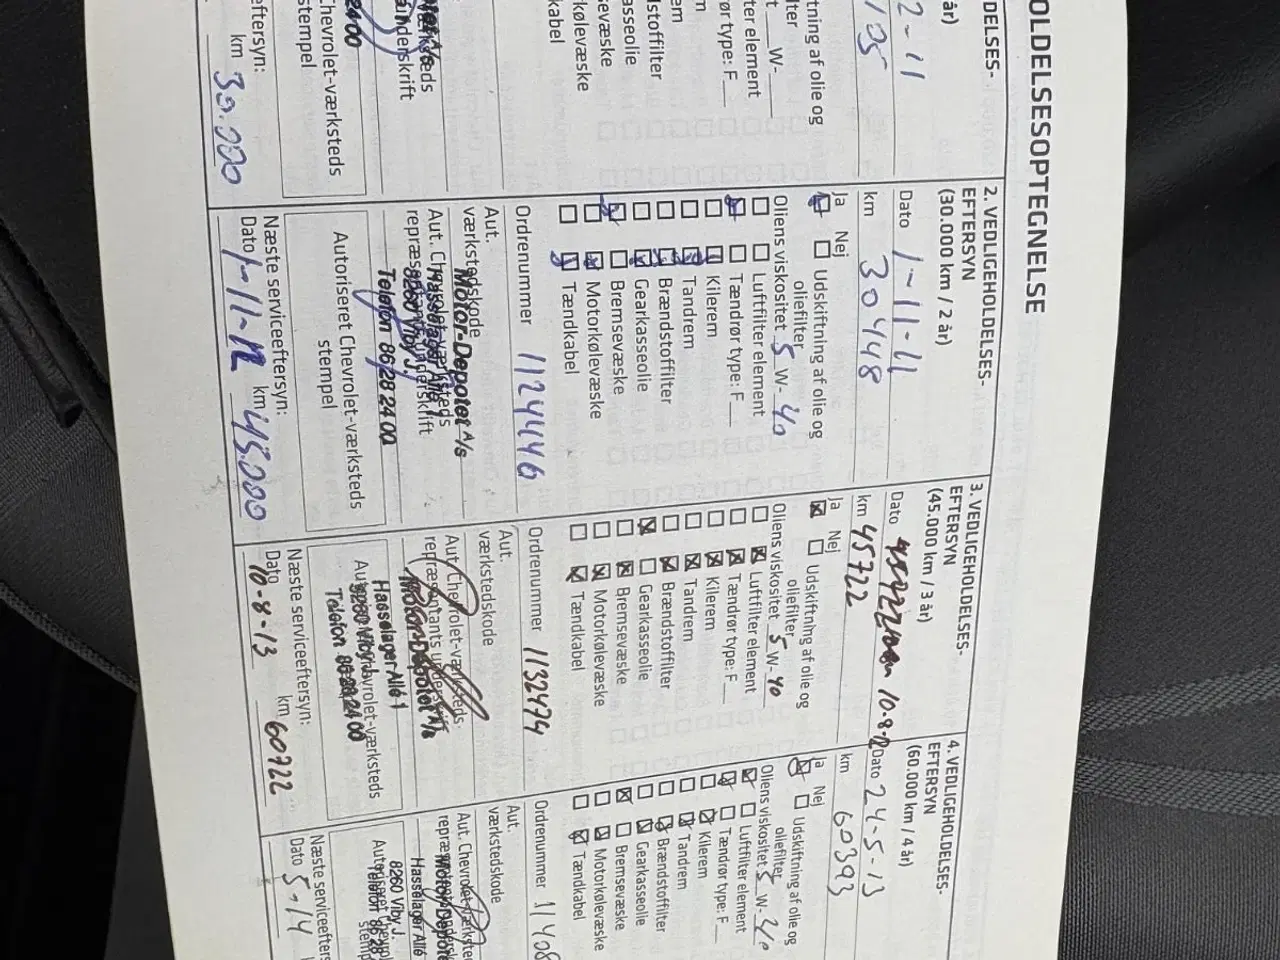 OLDELSESOPTEGNELSE
DELSES-
år)
2-11
105
ftning af olie og
filter
t W-
ter element
rør type: F
em
dstoffilter
asseolie
msevæske
kølevæske
kabel
underskrift
2400
Chevrolet-værksteds
stempel
eftersyn:
km 30.000
2. VEDLIGEHOLDELSES-
EFTERSYN
(30.000 km / 2 år)
Dato 1-11-11
km 30448
Ja Nej
Udskiftning af olie og
oliefilter
Oliens viskositet 5 W- 40
Luftfilter element
Tændrør type: F
Kilerem
Tandrem
Brændstoffilter
Gearkasseolie
Bremsevæske
Motorkølevæske
Tændkabel
Ordrenummer 1124446
Aut.
værkstedskode
Motor-Depotet A/S
Aut. Chevrolet-værksteds
repræsentants underskrift
Hasselager Allé 1
8260 Viby J.
Telefon 86 28 24 00
Autoriseret Chevrolet-værksteds
stempel
Næste serviceeftersyn:
Dato 1-11-12 km 45.000
3. VEDLIGEHOLDELSES-
EFTERSYN
(45.000 km / 3 år)
Dato 10-8-12
km 45722
Ja Nej
Udskiftning af olie og
oliefilter
Oliens viskositet 5 W- 40
Luftfilter element
Tændrør type: F
Kilerem
Tandrem
Brændstoffilter
Gearkasseolie
Bremsevæske
Motorkølevæske
Tændkabel
Ordrenummer 1132474
Aut.
værkstedskode
Aut. Chevrolet-værksteds-
repræsentants underskrift
Motor-Depotet A/S
Hasselager Allé 1
8260 Viby J.
Telefon 86 28 24 00
Næste serviceeftersyn:
Dato 10-8-13 km 60722
4. VEDLIGEHOLDELSES-
EFTERSYN
(60.000 km / 4 år)
Dato 24-5-13
km 60393
Ja Nej
Udskiftning af olie og
oliefilter
Oliens viskositet 5 W- 40
Luftfilter element
Tændrør type: F
Kilerem
Tandrem
Brændstoffilter
Gearkasseolie
Bremsevæske
Motorkølevæske
Tændkabel
Ordrenummer 11408
Aut.
værkstedskode
Aut. Chevrolet-værksted
Motor-Depote
Hasselager Allé
8260 Viby J.
Telefon 86 28
Næste serviceefters
Dato 5-14